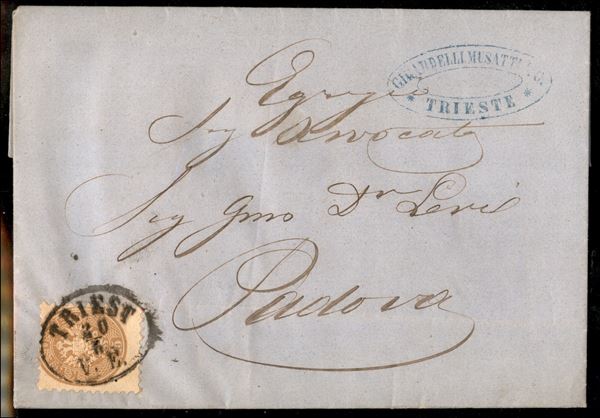 GIRARDELLI MUSATTI & C.
* TRIESTE *
Egregio
Sig Avvocato
Sig Gmo Dr Levi
Padova
TRIEST
20
V. E.